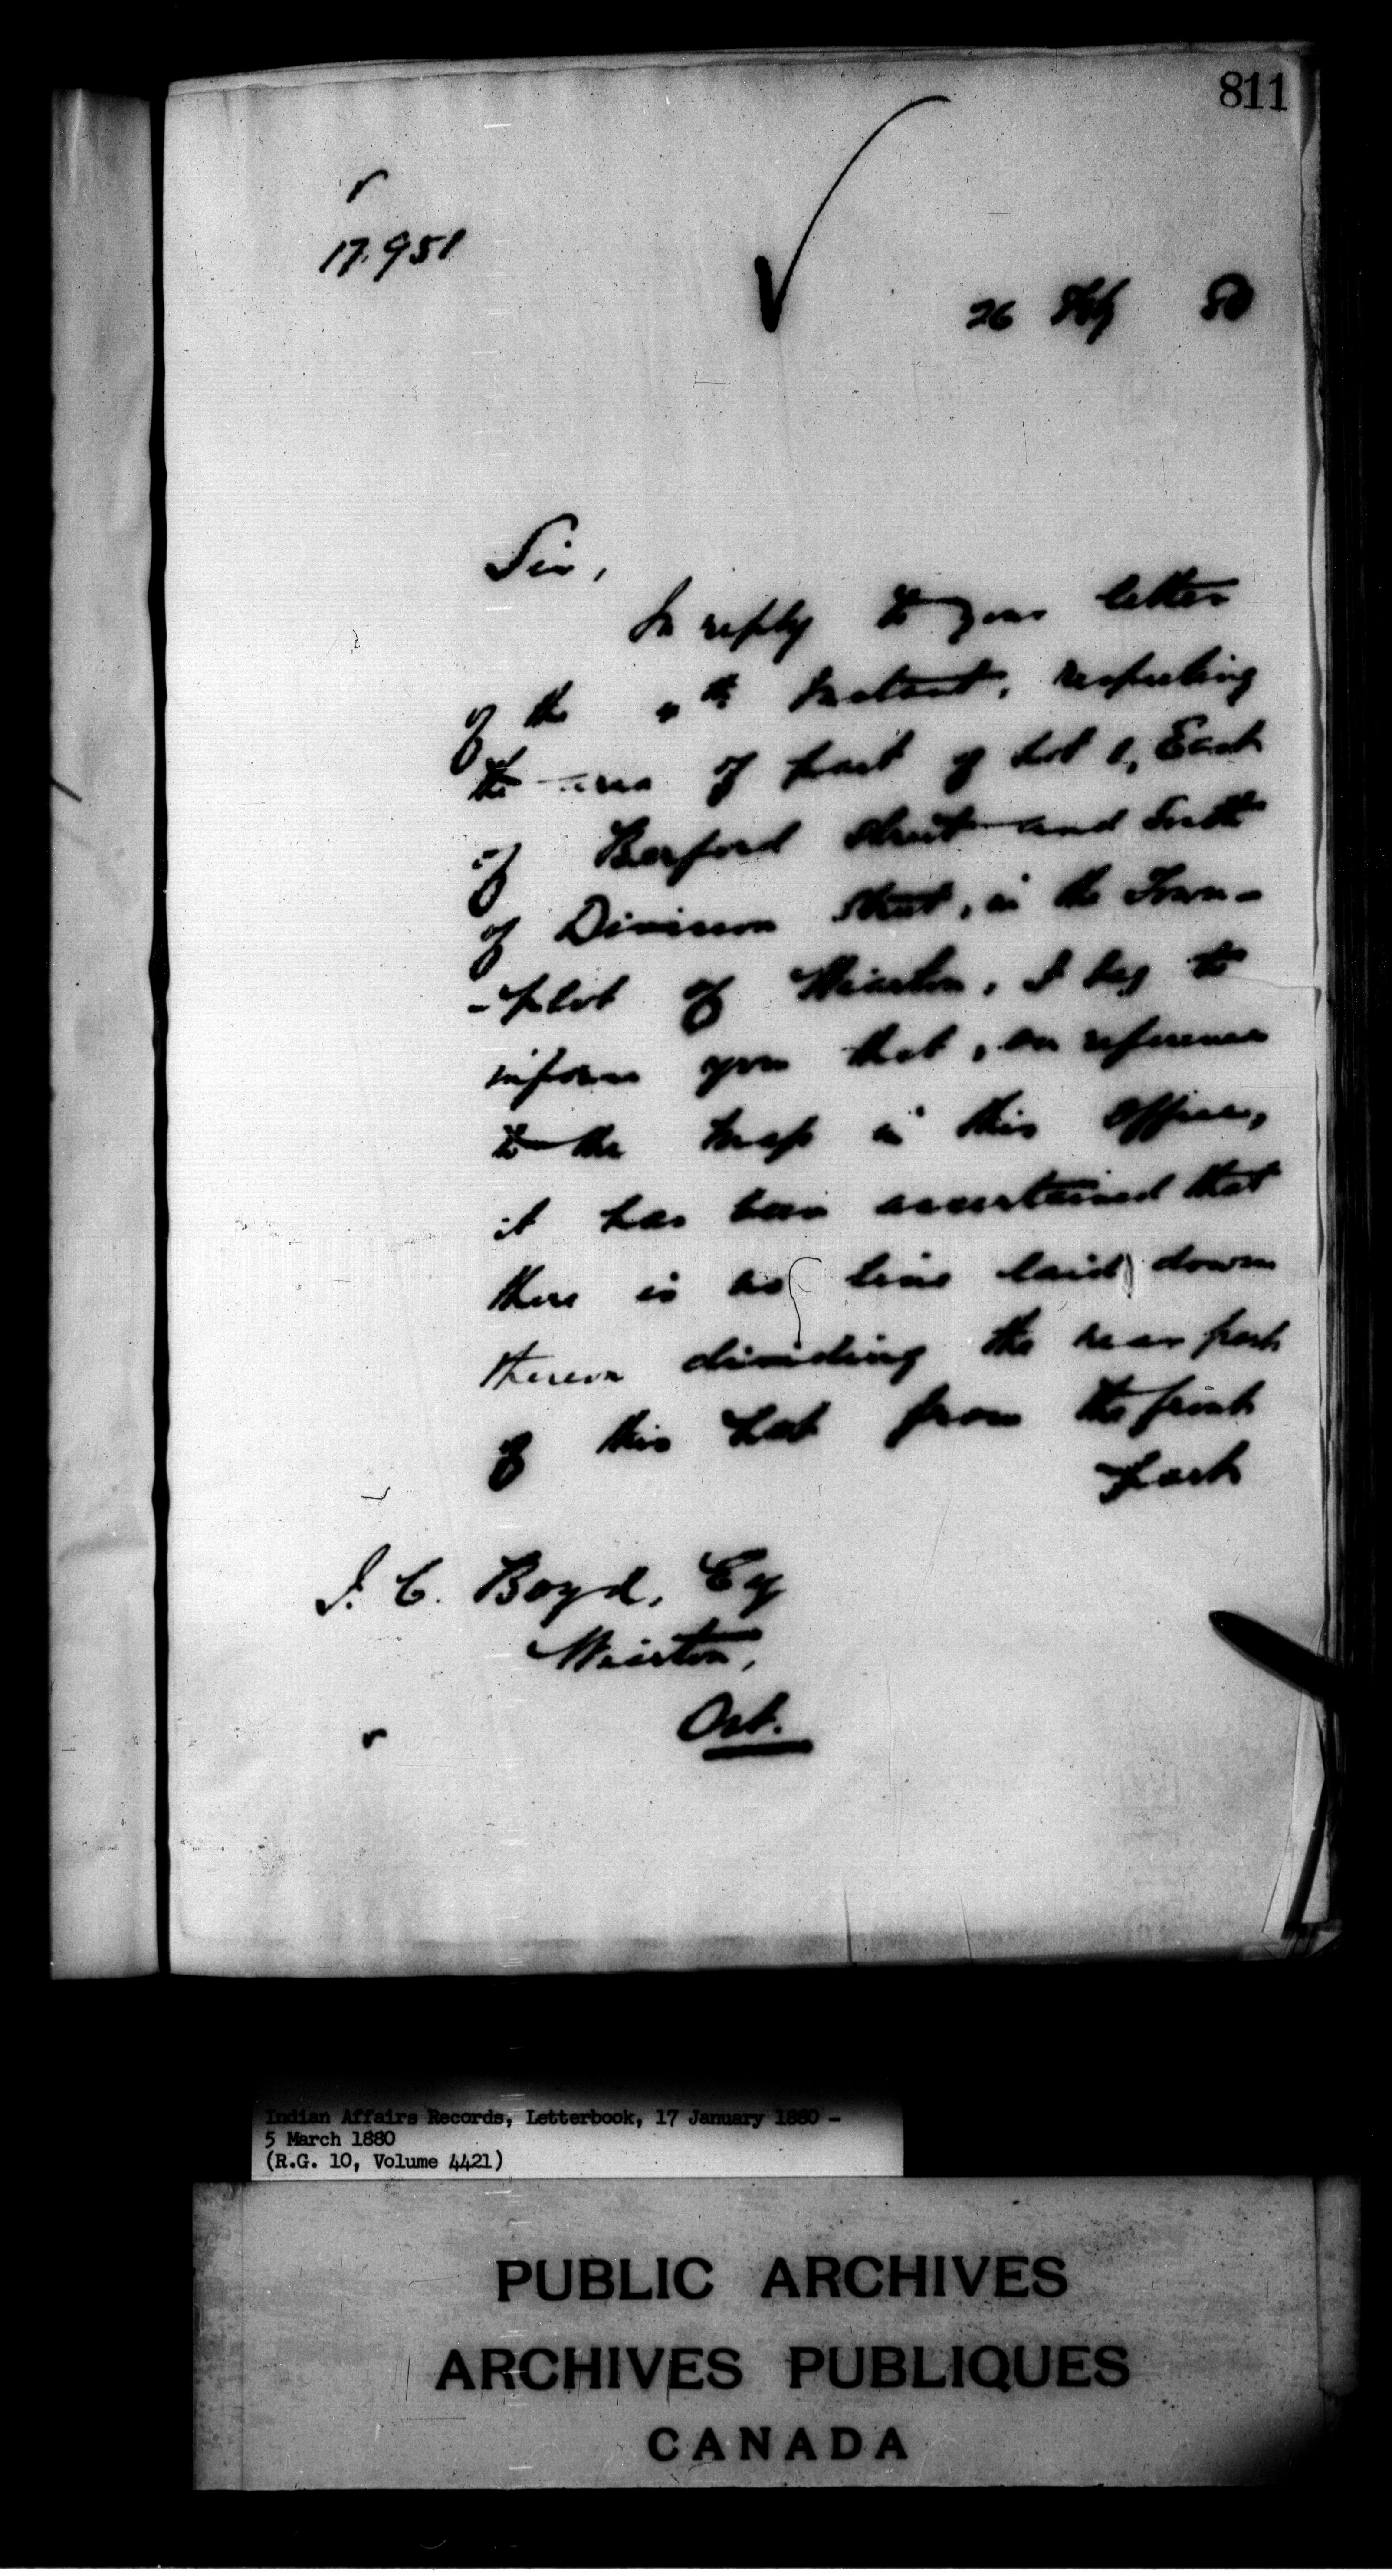 811
17.951
26 Feby 80
Sir,
In reply to your letter
of the th Instant, respecting
the area of part of Lot 1, East
of Berford Street and South
of Division Street, in the Town-
-plot of Wiarton, I beg to
inform you that, on reference
to the map in this Office,
it has been ascertained that
there is no line laid down
thereon dividing the rear part
of this Lot from the front
part
J. C. Boyd, Esq
Wiarton,
Ont.
Indian Affairs Records, Letterbook, 17 January 1880 -
5 March 1880
(R.G. 10, Volume 4421)
PUBLIC ARCHIVES
ARCHIVES PUBLIQUES
CANADA